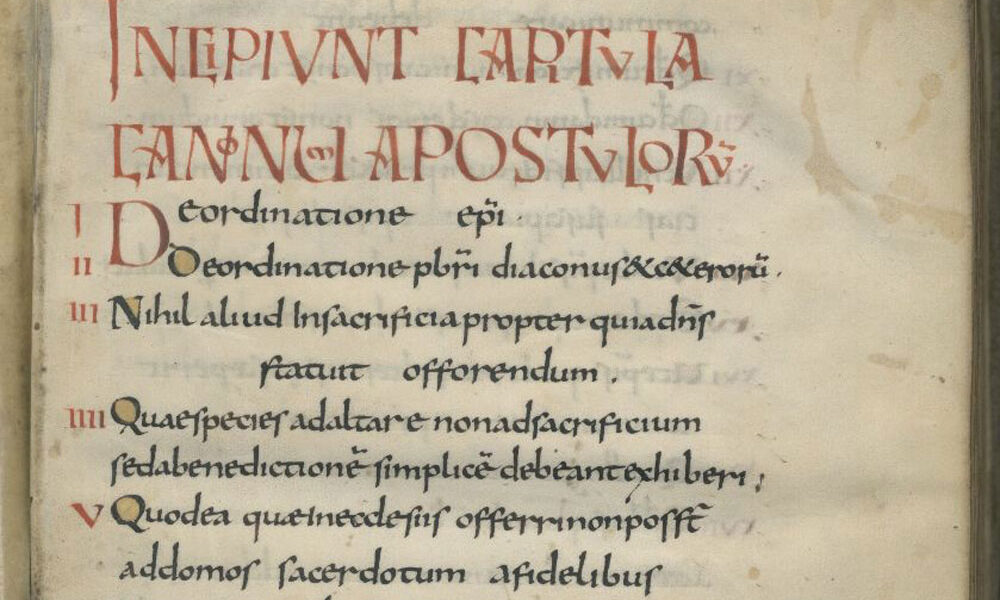 INCIPIUNT CARTULA
CANONUM APOSTULORU̅
I De ordinatione ep̅i
II De ordinatione pb̅ri diaconus & c&erorū.
III Nihil aliud In sacrificia propter quia dn̅s
statuit offorendum.
IIII Quae species ad altare non ad sacrificium
sed ab enedictionē simplicē debeant exhiberi;
V Quod ea quae in ecclesiis offerri non posst̅
ad domos sacerdotum a fidelibus